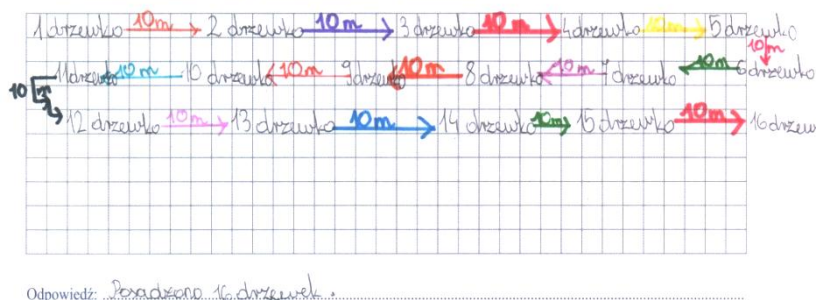 1 drzewko 10 m 2 drzewko 10 m 3 drzewko 10 m 4 drzewko 10 m 5 drzewko
10 m
11 drzewko 10 m 10 drzewko 10 m 9 drzewko 10 m 8 drzewko 10 m 7 drzewko 10 m 6 drzewko
10 m
12 drzewko 10 m 13 drzewko 10 m 14 drzewko 10 m 15 drzewko 10 m 16 drzew
Odpowiedź: Posadzono 16 drzewek.